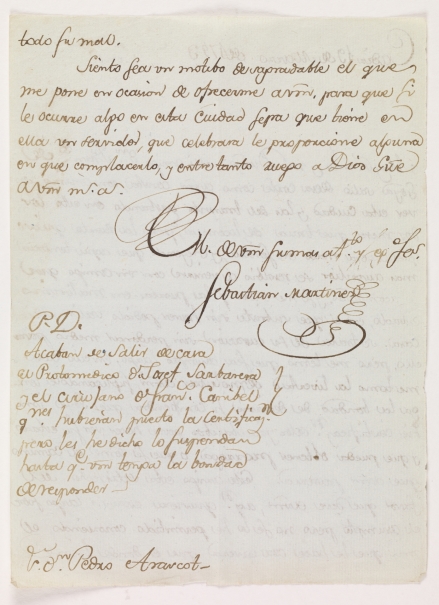 todo su mal.
Siento sea vn motibo desagradable el que
me pone en ocasion de ofrecerme a vm, para que si
le ocurre algo en esta Ciudad sepa que tiene en
ella vn servidor, que celebrara le proporcione alguna
en que complacerlo, y entretanto ruego a Dios Gue
a vm m.s a.s
de vm su mas at.to y
Sebastian Martinez
P. D.
Acaban de salir de casa
el Protomedico Sarbanera
y el cirujano Fran.co Canibel
q.nes hubieran puesto la Certificaz.n
pero les he dicho lo suspendan
hasta q.e vm tenga la bondad
de responder
S.r D.n Pedro